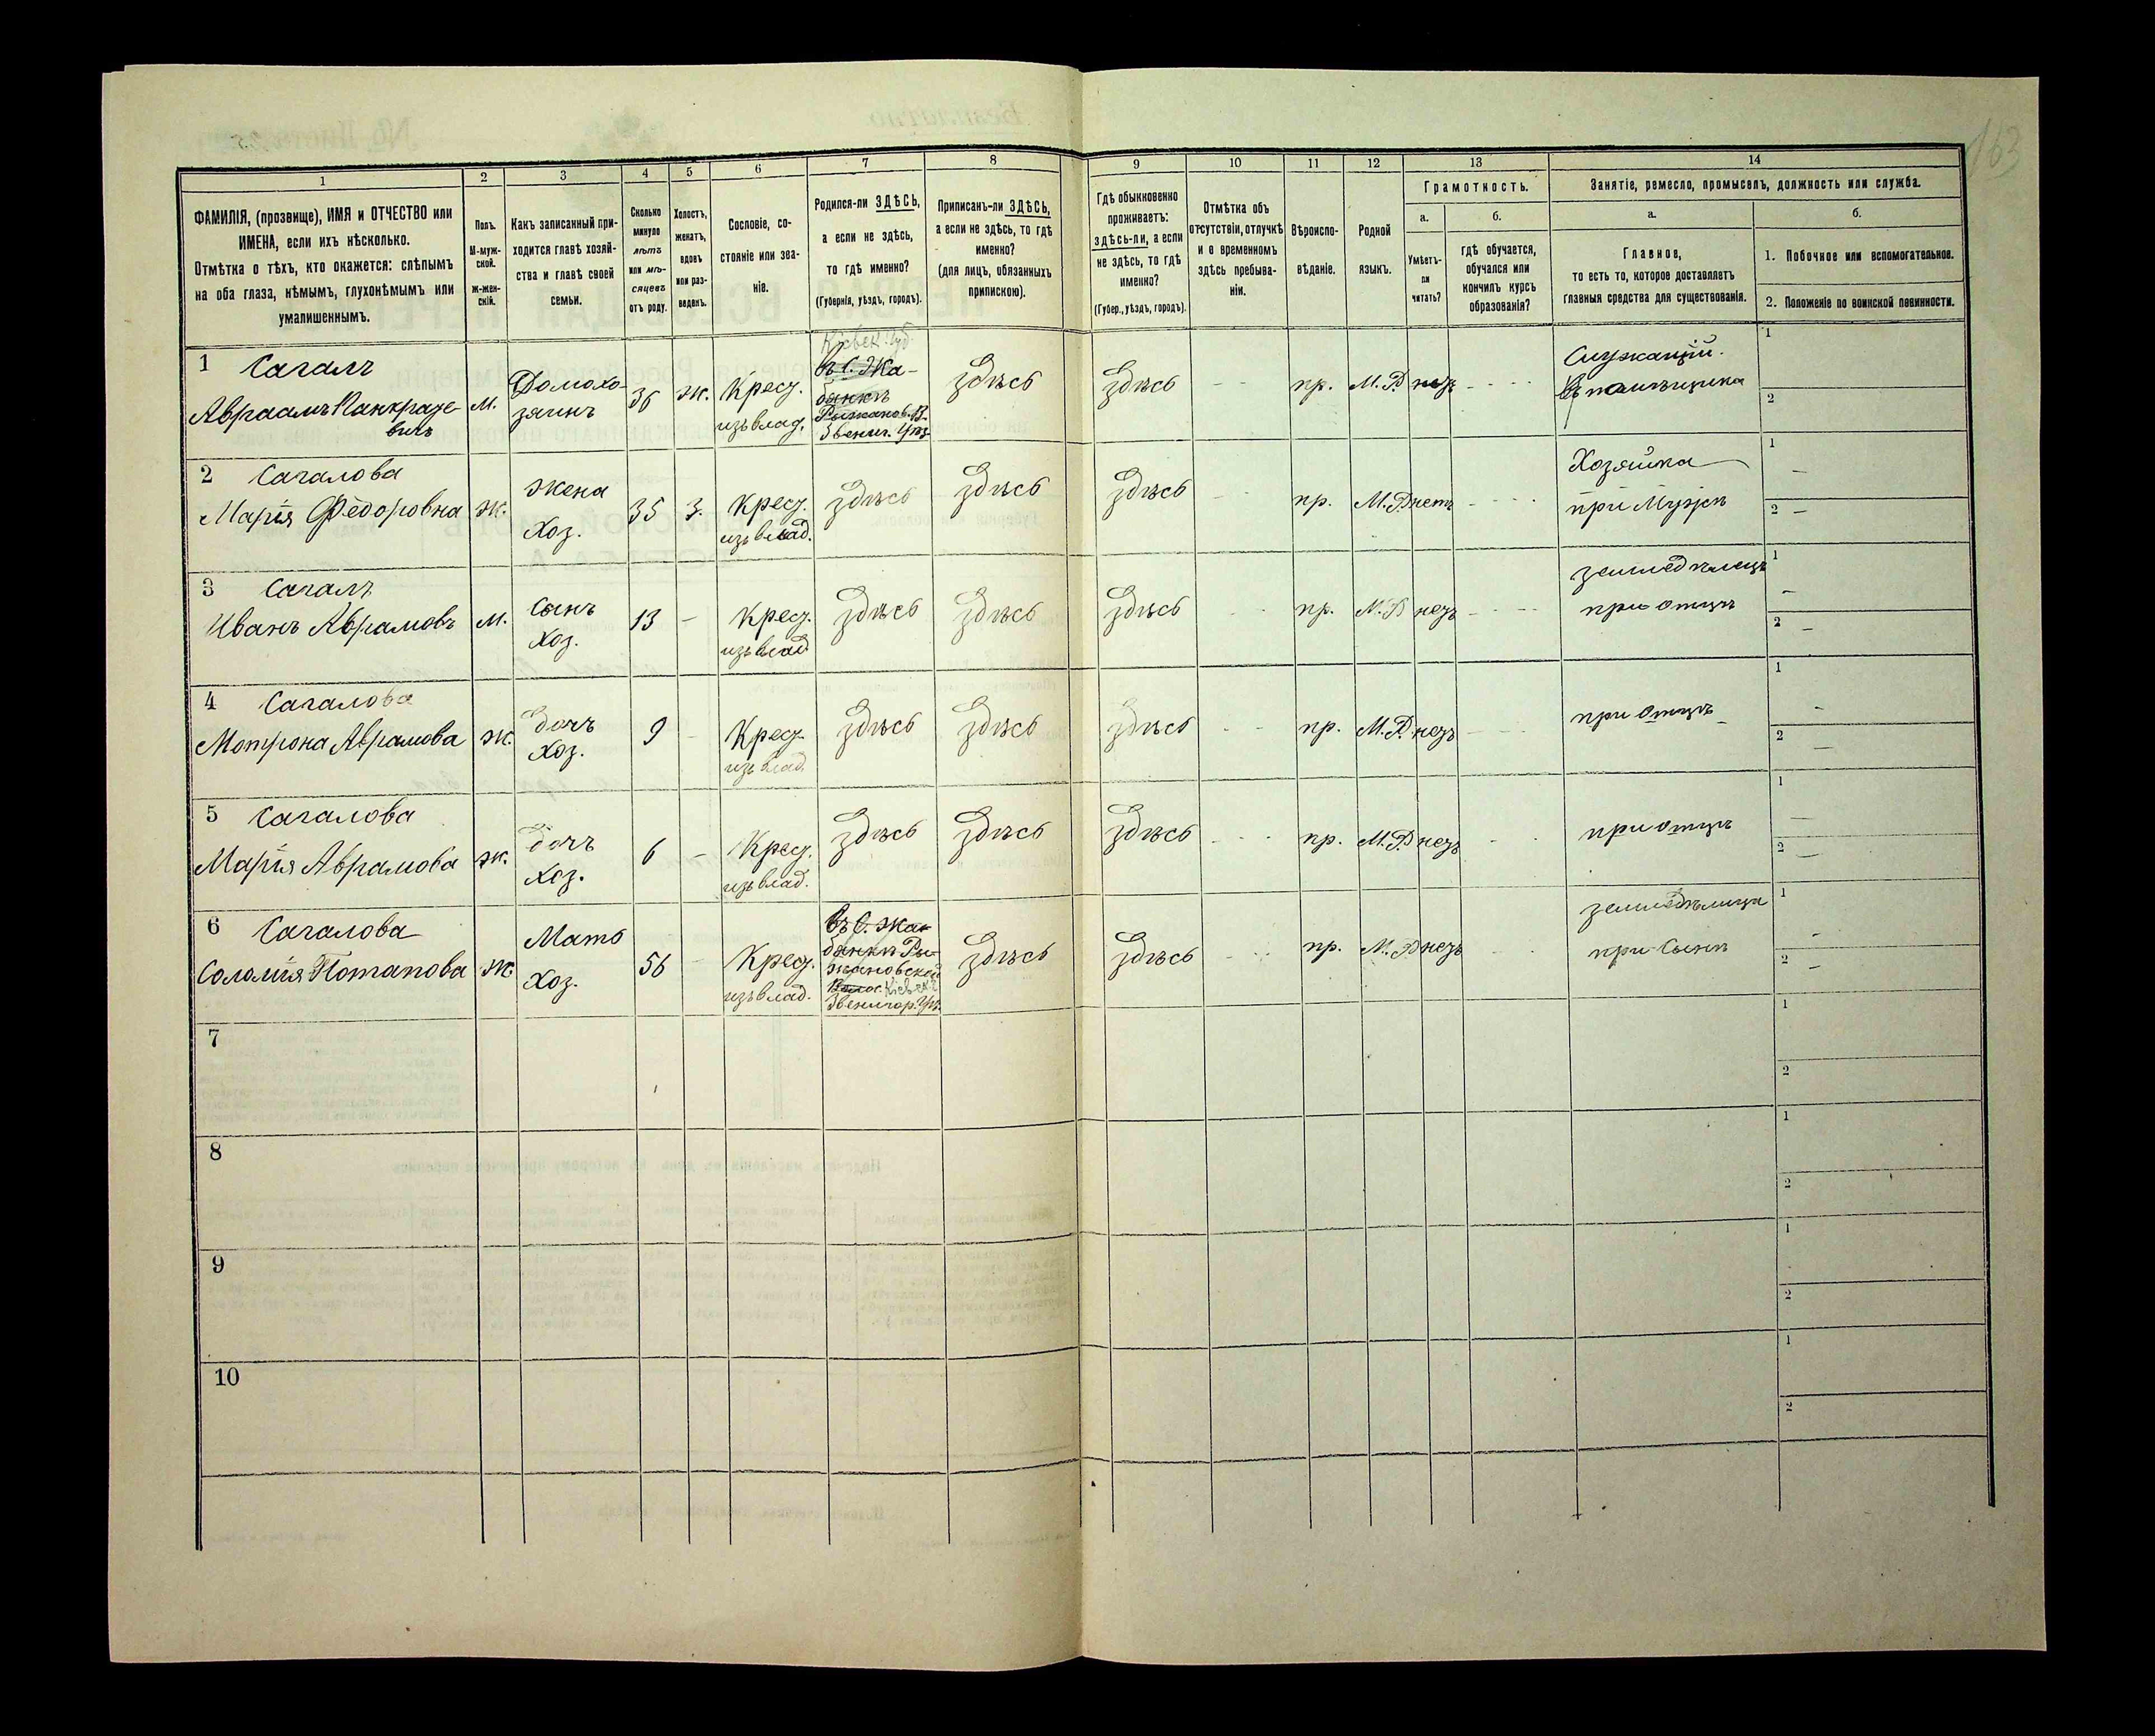 163
1 2 3 4 5 6 7 8 9 10 11 12 13 14
ФАМИЛІЯ, (прозвище), ИМЯ и ОТЧЕСТВО или
ИМЕНА, если ихъ нѣсколько.
Отмѣтка о тѣхъ, кто окажется: слѣпымъ
на оба глаза, нѣмымъ, глухонѣмымъ или
умалишеннымъ.
Полъ.
М-муж-
ской.
ж-жен-
скій.
Какъ записанный при-
ходится главѣ хозяй-
ства и главѣ своей
семьи.
Сколько
минуло
лѣтъ
или мѣ-
сяцевъ
отъ роду.
Холостъ,
женатъ,
вдовъ
или раз-
веденъ.
Сословіе, со-
стояніе или зва-
ніе.
Родился-ли ЗДѢСЬ,
а если не здѣсь,
то гдѣ именно?
(Губернія, уѣздъ, городъ).
Приписанъ-ли ЗДѢСЬ,
а если не здѣсь, то гдѣ
именно?
(для лицъ, обязанныхъ
припискою).
Гдѣ обыкновенно
проживаетъ:
здѣсь-ли, а если
не здѣсь, то гдѣ
именно?
(Губер., уѣздъ, городъ).
Отмѣтка объ
отсутствіи, отлучкѣ
и о временномъ
здѣсь пребыва-
ніи.
Вѣроиспо-
вѣданіе.
Родной
языкъ.
Грамотность.
а.
Умѣетъ-
ли
читать?
б.
гдѣ обучается,
обучался или
кончилъ курсъ
образованія?
Занятіе, ремесло, промыселъ, должность или служба.
а.
Главное,
то есть то, которое доставляетъ
главныя средства для существованія.
б.
1. Побочное или вспомогательное.
2. Положеніе по воинской повинности.
1 Сагалъ
Авраамъ Панкратье-
вичъ
м.
Домохо-
зяинъ
36
ж.
Крест.
изъ влад.
Кіевск. губ.
въ С. Жа-
банкѣ
Рыжанов. В.
Звениг. Уѣз.
здѣсь
здѣсь
- -
пр.
М.Р.
нетъ
- - - -
Служащій
въ помѣщика
1
2
2 Сагалова
Марія Федоровна
ж.
жена
Хоз.
35
З.
Крест.
изъ влад.
здѣсь
здѣсь
здѣсь
пр.
М.Р.
нетъ
- - - -
Хозяйка
при Мужѣ
1 –
2 –
3 Сагалъ
Иванъ Аврамовъ
м.
сынъ
Хоз.
13
–
Крест.
изъ влад.
здѣсь
здѣсь
здѣсь
пр.
М.Р.
нетъ
- - - -
земледѣлецъ
при отцѣ
1 –
2 –
4 Сагалова
Мотрона Аврамова
ж.
дочъ
Хоз.
9
–
Крест.
изъ влад.
здѣсь
здѣсь
здѣсь
пр.
М.Р.
нетъ
при отцѣ
1 –
2 –
5 Сагалова
Марія Аврамова
ж.
дочъ
Хоз.
6
–
Крест.
изъ влад.
здѣсь
здѣсь
здѣсь
пр.
М.Р.
нетъ
при отцѣ
1 –
2 –
6 Сагалова
Соломія Потапова
ж.
Мать
Хоз.
56
–
Крест.
изъ влад.
въ С. Жа-
банкѣ Ры-
жановской
Волос. Кіевск. г.
Звенигор. Уѣз.
здѣсь
здѣсь
пр.
М.Р.
нетъ
земледѣлица
при Сынѣ
1 –
2 –
7
1
2
8
1
2
9
1
2
10
1
2